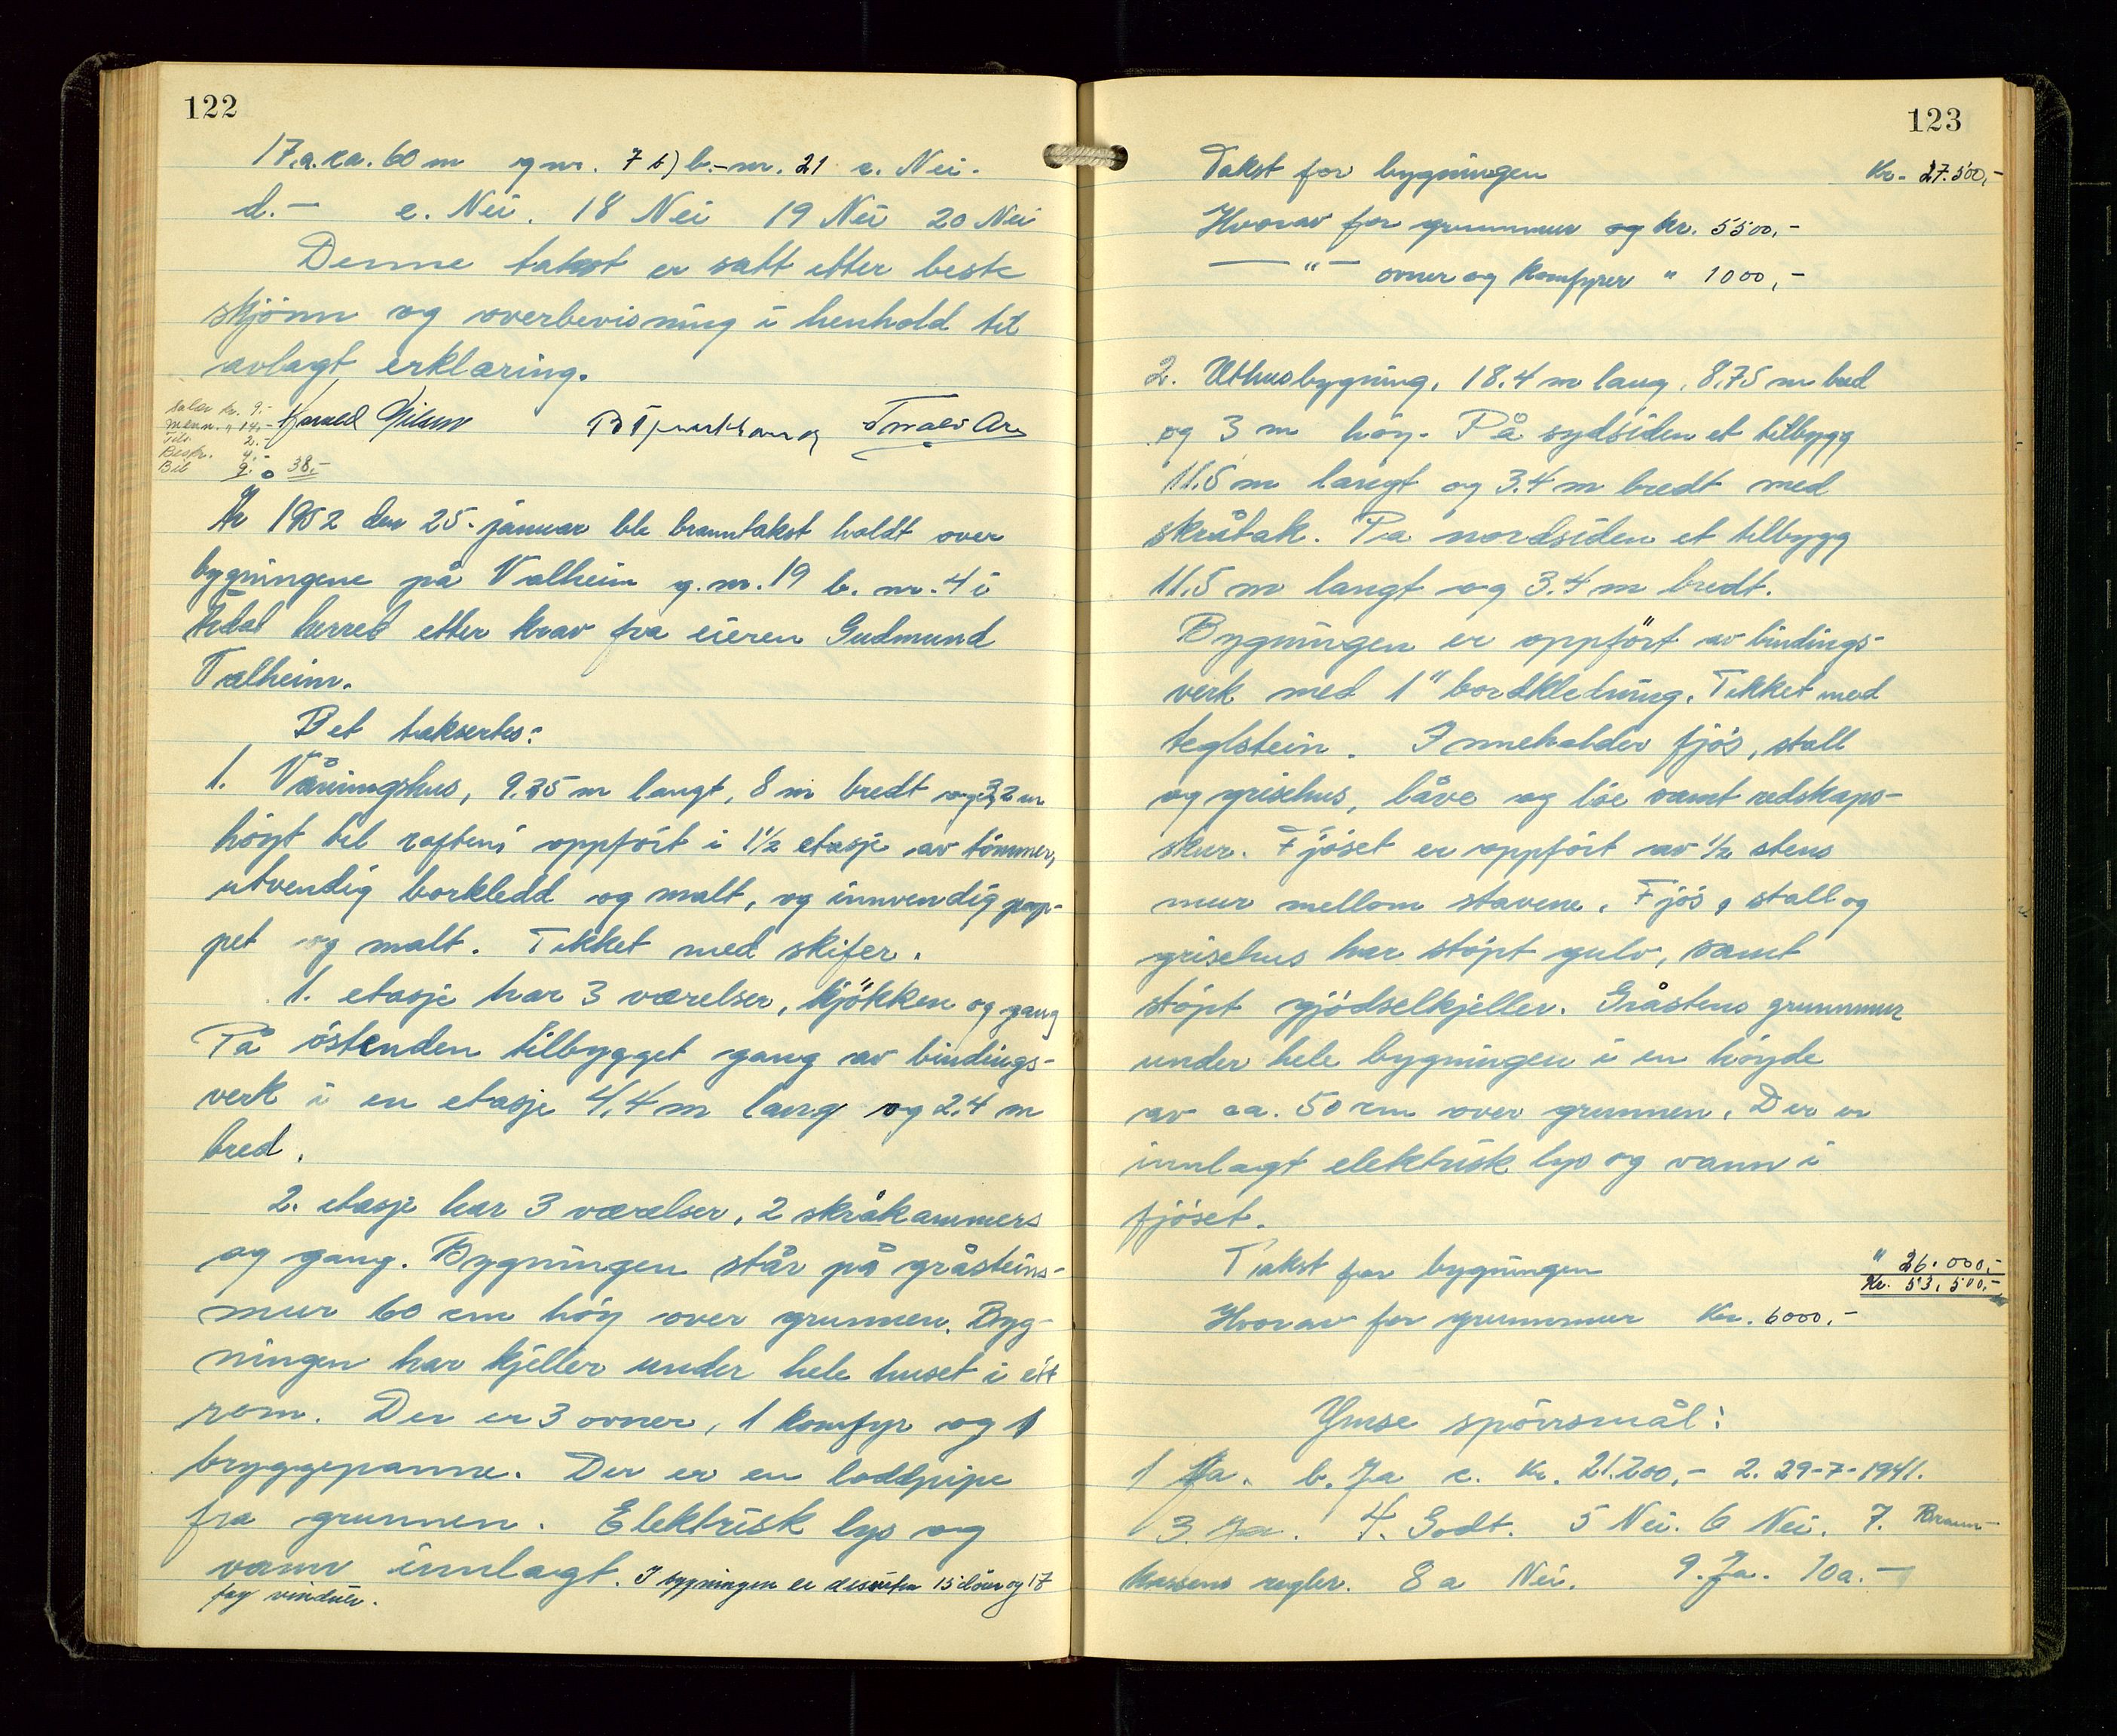 122
17.a. ca. 60 m gnr. 7 b) b.-nr. 21 c. Nei.
d. — e. Nei. 18 Nei 19 Nei 20 Nei
Denne takst er satt etter beste
skjönn og overbevisning i henhold til
avlagt erklæring.
Salær kr. 9.-
" 14,-
2.-
Beskr. 4.-
Bil 9.- 38,-
År 1952 den 25. januar ble branntakst holdt over
bygningene på Valheim g.nr. 19 b. nr. 4 i
herred etter krav fra eieren Gudmund
Valheim.
Det taksertes:
1. Våningshus, 9.35 m langt, 8 m bredt og 3,2 m
höyt til raften, oppfört i 1½ etasje av tömmer,
utvendig borkledd og malt, og innvendig pap-
pet og malt. Tekket med skifer.
1. etasje har 3 værelser, kjökken og gang
På östenden tilbygget gang av bindings-
verk i en etasje 4,4 m lang og 2,4 m
bred.
2. etasje har 3 værelser, 2 skråkammers
og gang. Bygningen står på gråsteins-
mur 60 cm höy over grunnen. Byg-
ningen har kjeller under hele huset i ett
rom. Der er 3 ovner, 1 komfyr og 1
bryggepanne. Der er en loddpipe
fra grunnen. Elektrisk lys og
vann innlagt. I bygningen er dessuten 15 dörer og 17
fag vinduer.
123
Takst for bygningen Kr. 27.500,-
Hvorav for grunnmur og kr. 5500,-
— " — ovner og komfyrer " 1000,-
2. Uthusbygning, 18.4 m lang, 8.75 m bred
og 3 m höy. På sydsiden et tilbygg
11.5 m langt og 3.4 m bredt med
skråtak. På nordsiden et tilbygg
11.5 m langt og 3.4 m bredt.
Bygningen er oppfört av bindings-
verk med 1" bordkledning. Tekket med
teglstein. Inneholder fjös, stall
og grisehus, låve og löe samt redskaps-
skur. Fjöset er oppfört av ½ stens
mur mellom stavene. Fjös, stall og
grisehus har stöpt gulv, samt
stöpt gjödselkjeller. Gråstens grunnmur
under hele bygningen i en höyde
av ca. 50 cm over grunnen. Der er
innlagt elektrisk lys og vann i
fjöset.
Takst for bygningen " 26.000,-
Kr. 53.500,-
Hvorav for grunnmur Kr. 6000,-
Ymse spörrsmål:
1 Ja. b. Ja c. Kr. 21.200,- 2. 29-7-1941.
3. Ja. 4. Godt. 5 Nei. 6 Nei. 7. Brann-
kassens regler. 8 a Nei. 9. Ja. 10 a. —